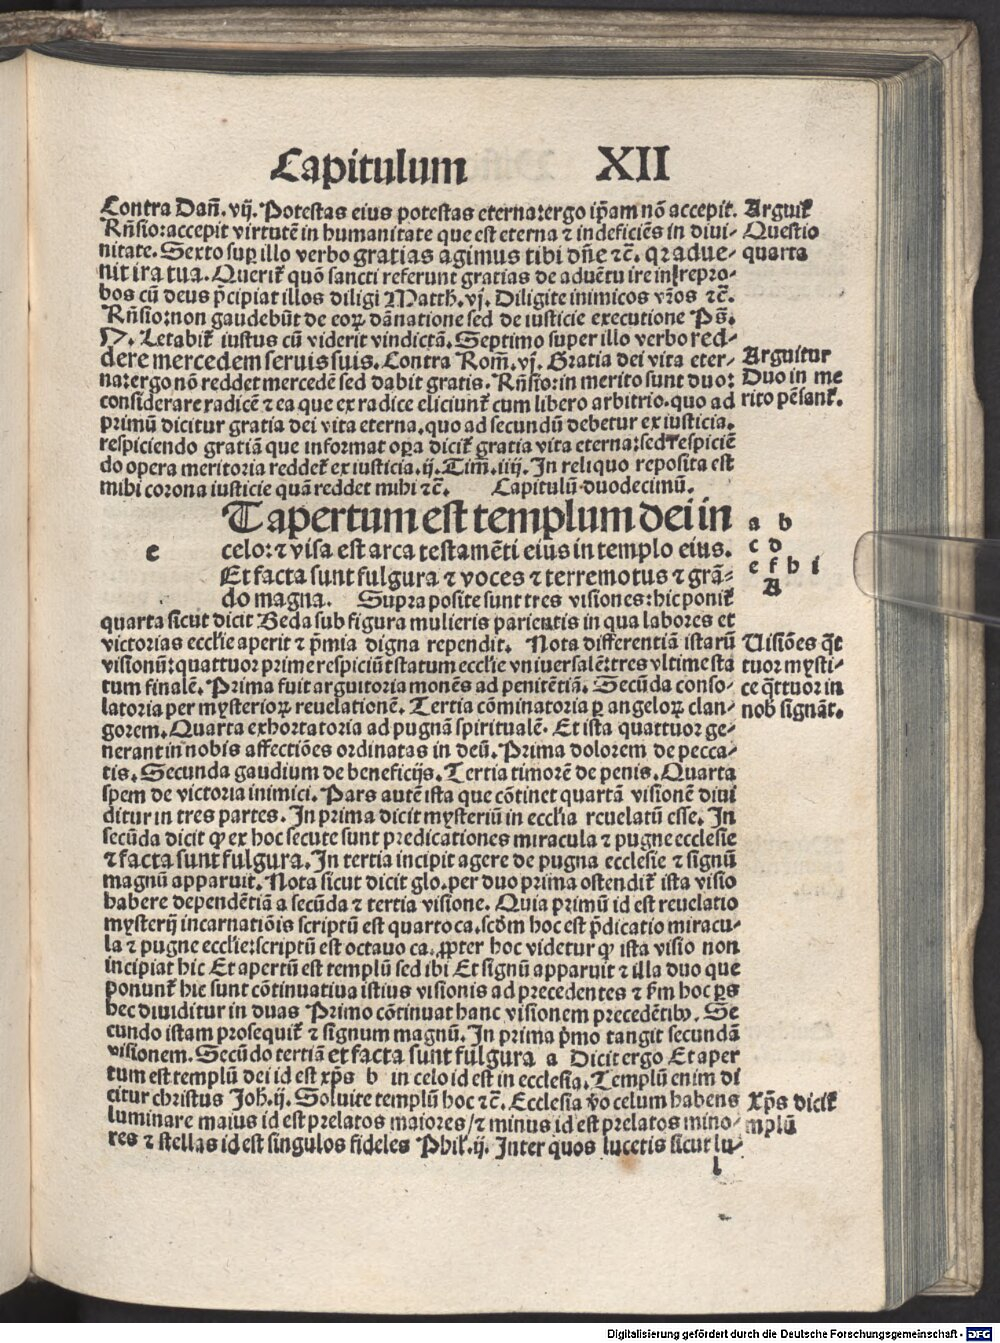 Capitulum XII
Contra Dañ. vij. Potestas eius potestas eterna: ergo ip̃am nõ accepit.
Rñsio: accepit virtutẽ in humanitate que est eterna ⁊ indeficiẽs in diui-
nitate. Sexto suꝑ illo verbo gratias agimus tibi dñe ⁊c̃. qꝛ adue-
nit ira tua. Queriť quõ sancti referunt gratias de aduẽtu ire in repro-
bos cũ deus p̃cipiat illos diligi Matth. vj. Diligite inimicos vr̃os ⁊c̃.
Rñsio: non gaudebũt de eoꝝ dãnatione sed de iusticie executione Ps̃.
57. Letabiť iustus cũ viderit vindictã. Septimo super illo verbo red-
dere mercedem seruis suis. Contra Rom̃. vj. Gratia dei vita eter-
na: ergo nõ reddet mercedẽ sed dabit gratis. Rñsio: in merito sunt duo:
considerare radicẽ ⁊ ea que ex radice eliciunť cum libero arbitrio. quo ad
primũ dicitur gratia dei vita eterna. quo ad secundũ debetur ex iusticia.
respiciendo gratiã que informat oꝑa diciť gratia vita eterna: sed respiciẽ
do opera meritoria reddeť ex iusticia. ij. Tim̃. iiij. In reliquo reposita est
mihi corona iusticie quã reddet mihi ⁊c̃. Capitulũ duodecimũ.
Arguiť
Questio
quarta
Arguitur
Duo in me
rito pẽsanť.
e
T apertum est templum dei in
celo: ⁊ visa est arca testamẽti eius in templo eius.
Et facta sunt fulgura ⁊ voces ⁊ terremotus ⁊ grã-
do magna. Supra posite sunt tres visiones: hic poniť
quarta sicut dicit Beda sub figura mulieris parientis in qua labores et
victorias ecclie aperit ⁊ p̃mia digna rependit. Nota differentiã istarũ
visionũ: quattuor prime respiciũt statum ecclie vniuersalẽ: tres vltime sta
tum finalẽ. Prima fuit arguitoria monẽs ad penitẽtiã. Secũda conso-
latoria per mysterioꝝ reuelationẽ. Tertia cõminatoria ꝑ angeloꝝ clan-
gorem. Quarta exhortatoria ad pugnã spiritualẽ. Et ista quattuor ge-
nerant in nobis affectiões ordinatas in deũ. Prima dolorem de pecca-
tis. Secunda gaudium de beneficijs. Tertia timorẽ de penis. Quarta
spem de victoria inimici. Pars autẽ ista que cõtinet quartã visionẽ diui
ditur in tres partes. In prima dicit mysteriũ in ecclia reuelatũ esse. In
secũda dicit ꝙ ex hoc secute sunt predicationes miracula ⁊ pugne ecclesie
⁊ facta sunt fulgura. In tertia incipit agere de pugna ecclesie ⁊ signũ
magnũ apparuit. Nota sicut dicit glo. per duo prima ostendiť ista visio
habere dependẽtiã a secũda ⁊ tertia visione. Quia primũ id est reuelatio
mysterij incarnatiõis scriptũ est quarto ca. scd̃m hoc est p̃dicatio miracu-
la ⁊ pugne ecclie: scriptũ est octauo ca. ꝓpter hoc videtur ꝙ ista visio non
incipiat hic Et apertũ est templũ sed ibi Et signũ apparuit ⁊ illa duo que
ponunť hic sunt cõtinuatiua istius visionis ad precedentes ⁊ f̃m hoc ꝑs
hec diuiditur in duas Primo cõtinuat hanc visionem precedẽtibꝰ. Se
cundo istam prosequiť ⁊ signum magnũ. In prima p̃mo tangit secundã
visionem. Secũdo tertiã et facta sunt fulgura a Dicit ergo Et aper
tum est templũ dei id est xp̃s b in celo id est in ecclesia. Templũ enim di
citur christus Joh. ij. Soluite templũ hoc ⁊c̃. Ecclesia ṽo celum habens
luminare maius id est prelatos maiores/ ⁊ minus id est prelatos mino-
res ⁊ stellas id est singulos fideles Phil̃. ij. Inter quos lucetis sicut lu-
a b
c d
e f h i
A
Uisiões q̃t
tuor mysti-
ce q̃ttuor in
nob̃ signãt.
Xp̃s diciť
mplũ
l
Digitalisierung gefördert durch die Deutsche Forschungsgemeinschaft - DFG